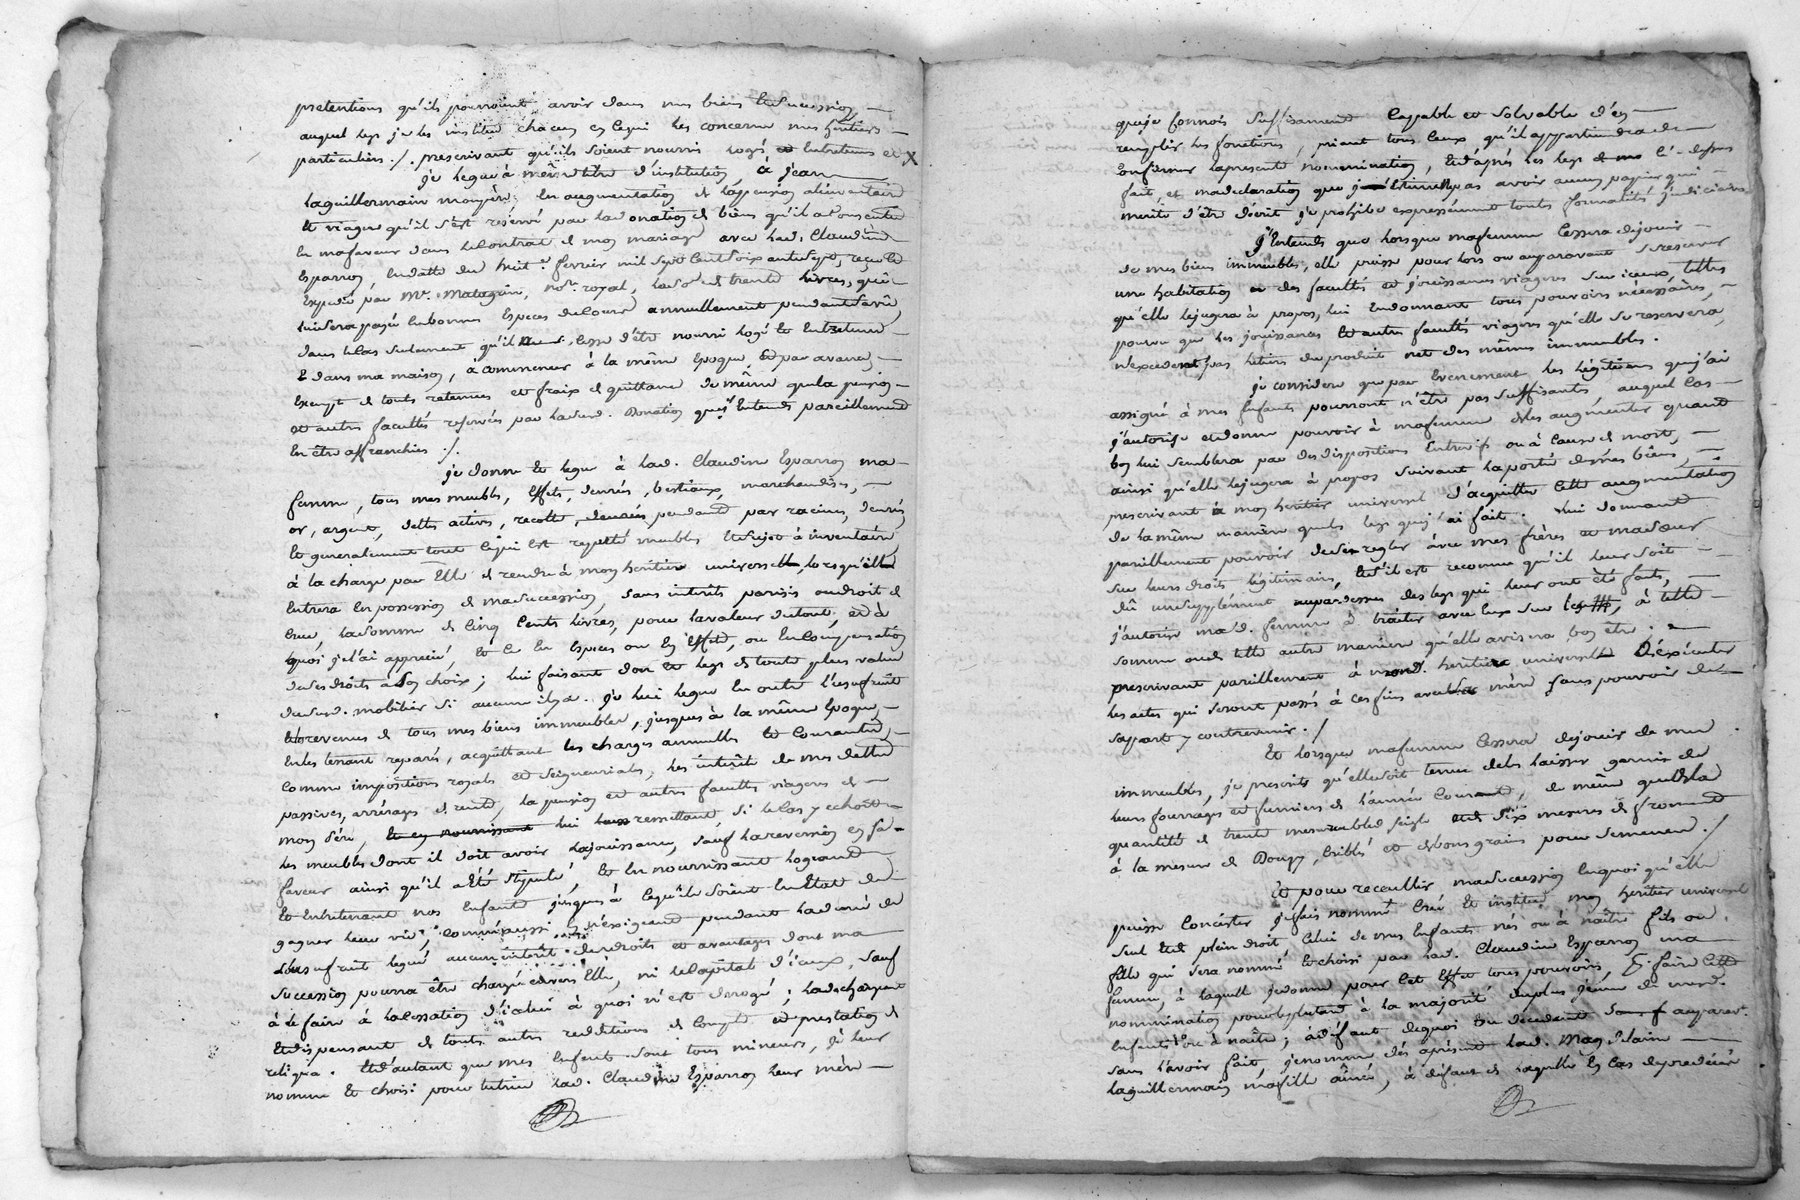 pretentions qu'ils pourroient avoir dans mes biens et succession
auquel legs je les institue chacun en ce qui les concerne mes heritiers
particuliers ./. prescrivant qu'ils soient nourris logés et entretenus et X
je legue à même titre d'institution, à jean
Laguillermain mon père, en augmentation de la pension alimentaire
et viagere qu'il s'est reservé par la donation de biens qu'il a consentie
en ma faveur dans le contrat de mon mariage avec lad. Claudine
Esparron, en datte du huit février mil sept cent soixante sept, reçu et
expedié par Me. notre. royal, la so. de trente livres, qui
lui sera payé en bonnes especes du cours annuellement pendant sa vie,
dans le cas seulement qu'il cesse d'être nourri logé et entretenu
dans ma maison, à commencer à la même epoque, et par avance,
exempt de toutes retenues et fraix de quittance de même que la pension
et autres facultés reservées par lad. Donation que j'entends pareillement
en être affranchies ./.
je donne et legue à lad. Claudine Esparron ma
femme, tous mes meubles, effets, denrées, bestiaux, marchandises,
or, argent, dettes actives, recolte, pendante par racines, denrées
et generalement tout ce qui est reputé meubles et sujet à inventaire
à la charge par elle de rendre à mon heritier universel, lorsqu'il
entrera en possession de ma succession, sans interêts parisis ou droit de
crue, la somme de cinq cents livres, pour la valeur du tout, et à
quoi je l'ai apprecié, et ce en especes ou en effets, ou en compensation
de ses droits à son choix; lui faisant don et legs de toute plus value
dud. mobilier si aucune il y a. je lui legue en outre l'usufruit
et revenus de tous mes biens immeubles, jusques à la même epoque,
en les tenant reparés, acquittant les charges annuelles et courantes,
comme impositions royales et seigneuriales, les interêts de mes dettes
passives, arrérages de rente, la pension et autres facultés viageres de
mon père, lui remettant si le cas y echoit
les meubles dont il doit avoir la jouissance, sauf la reversion en sa
faveur ainsi qu'il a été stipulé, et en nourrissant logeant
et entretenant nos enfants jusques à ce qu'ils soient en etat de
gagner leur vie, comme aussi n'exigeant pendant la durée de
l'usufruit legué aucun interêt de droits et avantages dont ma
succession pourra être chargée envers elle, ni le capital d'iceux, sauf
à le faire à la cessation d'icelui à quoi n'est derogé; la dechargeant
et dispensant de toute autre reddition de compte et prestation de
reliqua. et d'autant que mes enfants sont tous mineurs, je leur
nomme et choisi pour tutrice lad. Claudine Esparron leur mère
que je connois suffisamment capable et solvable d'en
remplir les fonctions, priant tous ceux qu'il appartiendra de
confirmer la presente nomination, et d'après les legs ci-dessus
fait, et ma declaration que je n'estime pas avoir aucun papier qui
merite d'être décrit je prohibe expressément toutes formalités judiciaires
j'entends que lorsque ma femme cessera de jouir
de mes biens immeubles, elle puisse pour lors ou auparavant se reserver
une habitation et des facultés et jouissances viageres sur iceux, telles
qu'elle le jugera à propos, lui en donnant tous pouvoirs nécessaires,
pourvu que les jouissances et autres facultés viageres qu'elle se reservera,
n'excedent pas le tiers du produit net des mêmes immeubles.
je considere que par evenement les légitimes que j'ai
assigné à mes enfants pourront n'être pas suffisantes, auquel cas
j'autorise et donne pouvoir à ma femme de les augmenter quand
bon lui semblera par des dispositions entrevifs ou à cause de mort,
ainsi qu'elle le jugera à propos suivant la portée de mes biens,
prescrivant à mon heritier universel d'acquitter cette augmentation
de la même maniere que les legs que j'ai fait. lui donnant
pareillement pouvoir de se regler avec mes frères et ma sœur
sur leurs droits légitimaires, et s'il est reconnu qu'il leur soit
dû un supplément au par dessus des legs qui leur ont été faits,
j'autorise mad. femme à traiter avec eux sur ce, à telle
somme ou de telle autre maniere qu'elle avisera bon être.
prescrivant pareillement à mond. heritier universel d'éxécuter
les actes qui seront passés à ces fins avec sa mère sans pouvoir de
sa part y contrevenir ./
Et lorsque ma femme cessera de jouir de mes
immeubles, je prescrits qu'elle soit tenue de les laisser garnis de
leurs fourrages et fumiers de l'année courante, de même que de la
quantité de trente mesures bled seigle et de six mesures de froment
à la mesure de Boupy, criblés et de bons grains pour semence ./
Et pour recueillir ma succession en quoi qu'elle
puisse consister je fais nomme cree et institue mon heritier universel
seul et de plein droit, celui de mes enfants nés ou à naître fils ou
fille qui sera nommé et choisi par lad. Claudine Esparron ma
femme, à laquelle je donne pour cet effet tous pouvoirs, faire cette
nomination pour le plus tard à la majorité du plus jeune de mesd.
enfants nés ou à naître; à défaut de quoi ou decedant auparavt.
sans l'avoir fait, je nomme dés aprésent lad. Magdelaine
Laguillermain ma fille aînée, à défaut de laquelle en cas de predécés